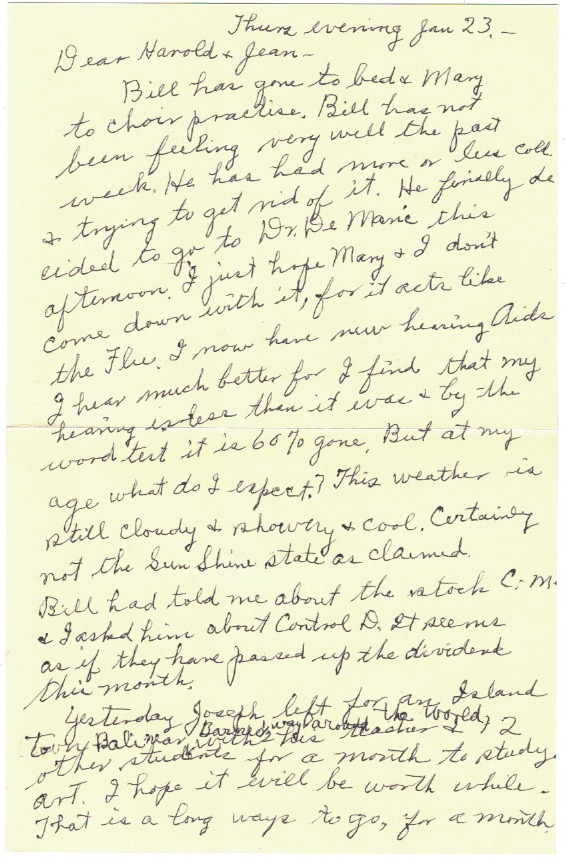 Thurs evening Jan 23. -
Dear Harold & Jean -
Bill has gone to bed & Mary
to choir practise. Bill has not
been feeling very well the past
week. He has had more or less cold
& trying to get rid of it. He finally de
cided to go to Dr. De Marie this
afternoon. I just hope Mary & I don't
come down with it, for it acts like
the Flu. I now have new hearing Aids
I hear much better for I find that my
hearing is less than it was & by the
word test it is 60% gone. But at my
age what do I expect? This weather is
still cloudy & showery & cool. Certainly
not the Sun Shine state as claimed.
Bill had told me about the stock C. M.
& I asked him about Control D. It seems
as if they have passed up the dividend
this month.
Yesterday Joseph left for an Island
town Bali near way around the World,
with his teacher & 2
other students for a month to study
art. I hope it will be worth while -
That is a long ways to go, for a month.